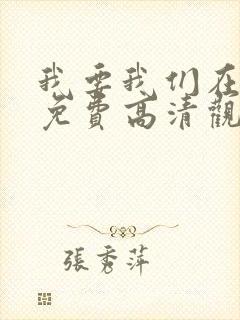 我要我们在
免费高清觀
張秀萍